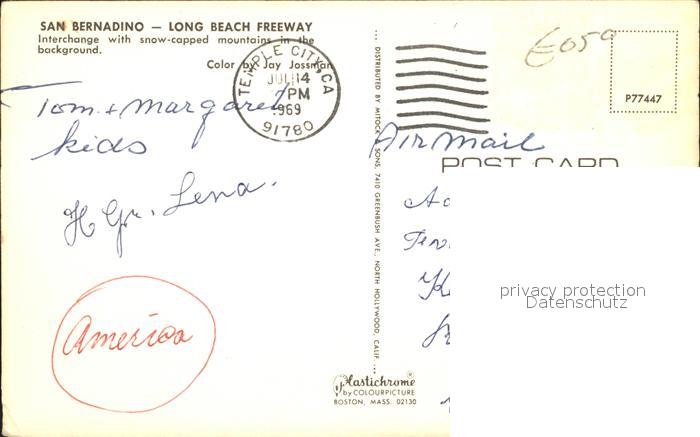 SAN BERNADINO — LONG BEACH FREEWAY
Interchange with snow-capped mountains in the
background.
Color by Jay Jossman
TEMPLE CITY, CA
JUL 14
PM
1969
91780
Tom + Margaret
kids
H Gr. Lena.
America
DISTRIBUTED BY MITOCK & SONS, 7410 GREENBUSH AVE., NORTH HOLLYWOOD, CALIF.
Plastichrome®
by COLOURPICTURE
BOSTON, MASS. 02130
P77447
Air mail
POST CARD
privacy protection
Datenschutz